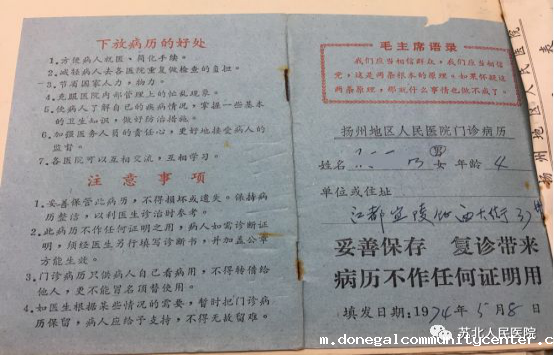 下放病历的好处
1.方便病人就医,简化手续。
2.减轻病人去各医院重复做检查的负担。
3.节省国家人力,物力。
4.克服医院内部管理上的忙乱现象。
5.使病人了解自己的疾病情况,掌握一些基本
的卫生知识,做好防治措施。
6.加强医务人员的责任心,更好地接受病人的
监督。
7.各医院可以互相交流,互相学习。
注意事项
1.妥善保管此病历,不得损坏或遗失。保持病
历整洁,以利医生诊治时参考。
2.此病历不作任何证明之用,病人如需诊断证
明,须经医生另行填写诊断书,并加盖公章
方能生效。
3.门诊病历只供病人自己看病用,不得转借给
他人,更不能冒名顶替使用。
4.如医生根据某些情况的需要,暂时把门诊病
历保留,病人应给予支持,不得无故留难。
毛主席语录
我们应当相信群众,我们应当相信
党,这是两条根本的原理,如果怀疑这
两条原理,那就什么事情也做不成了。
扬州地区人民医院门诊病历
姓名 男 女 年龄 4
单位或住址
江都宜陵
妥善保存 复诊带来
病历不作任何证明用
填发日期:1974年5月8日
扬州地区人民医院
m.donegalcommunitycenter.c
苏北人民医院